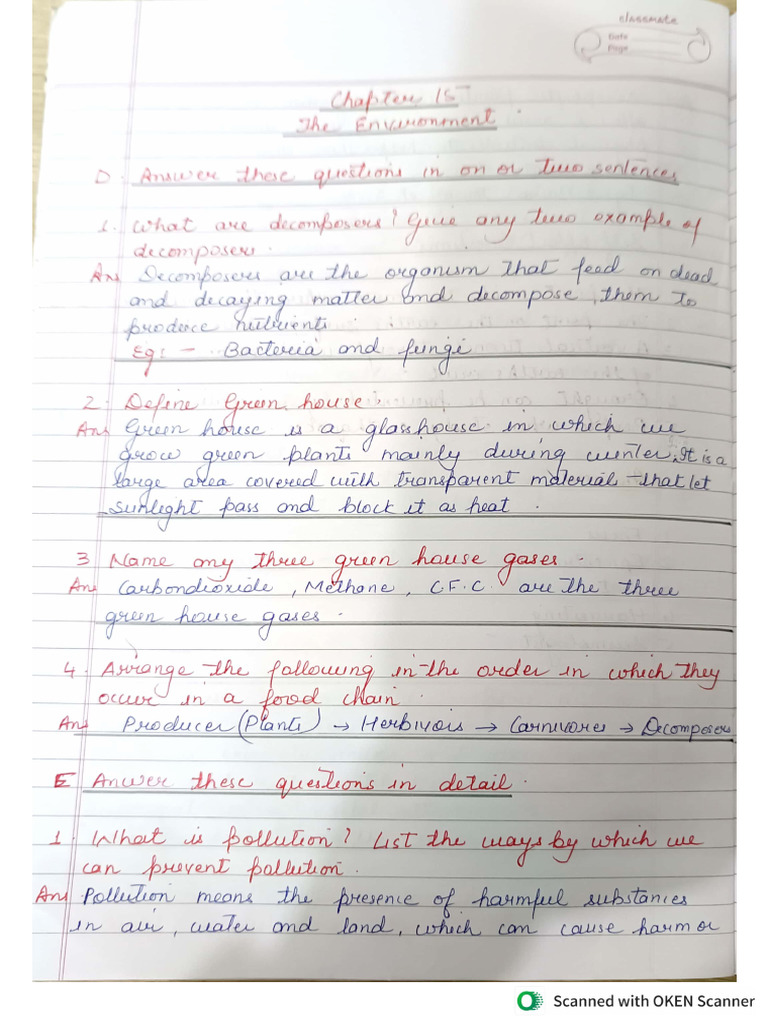 classmate
Date
Page
Chapter 15
The Environment.
D. Answer these questions in on or two sentences
1. What are decomposers? Give any two example of
decomposers.
Ans Decomposers are the organism that feed on dead
and decaying matter and decompose them to
produce nutrients.
Eg: - Bacteria and fungi
2. Define Green house.
Ans Green house is a glasshouse in which we
grow green plants mainly during winter. It is a
large area covered with transparent material that let
sunlight pass and block it as heat.
3 Name any three green house gases.
Ans Carbondioxide, Methane, C.F.C. are the three
green house gases.
4. Arrange the following in the order in which they
occur in a food chain.
Ans Producer (Plants) → Herbivors → Carnivores → Decomposers
E Anwer these questions in detail.
1. What is pollution? List the ways by which we
can prevent pollution.
Ans Pollution means the presence of harmful substances
in air, water and land, which can cause harm or
Scanned with OKEN Scanner